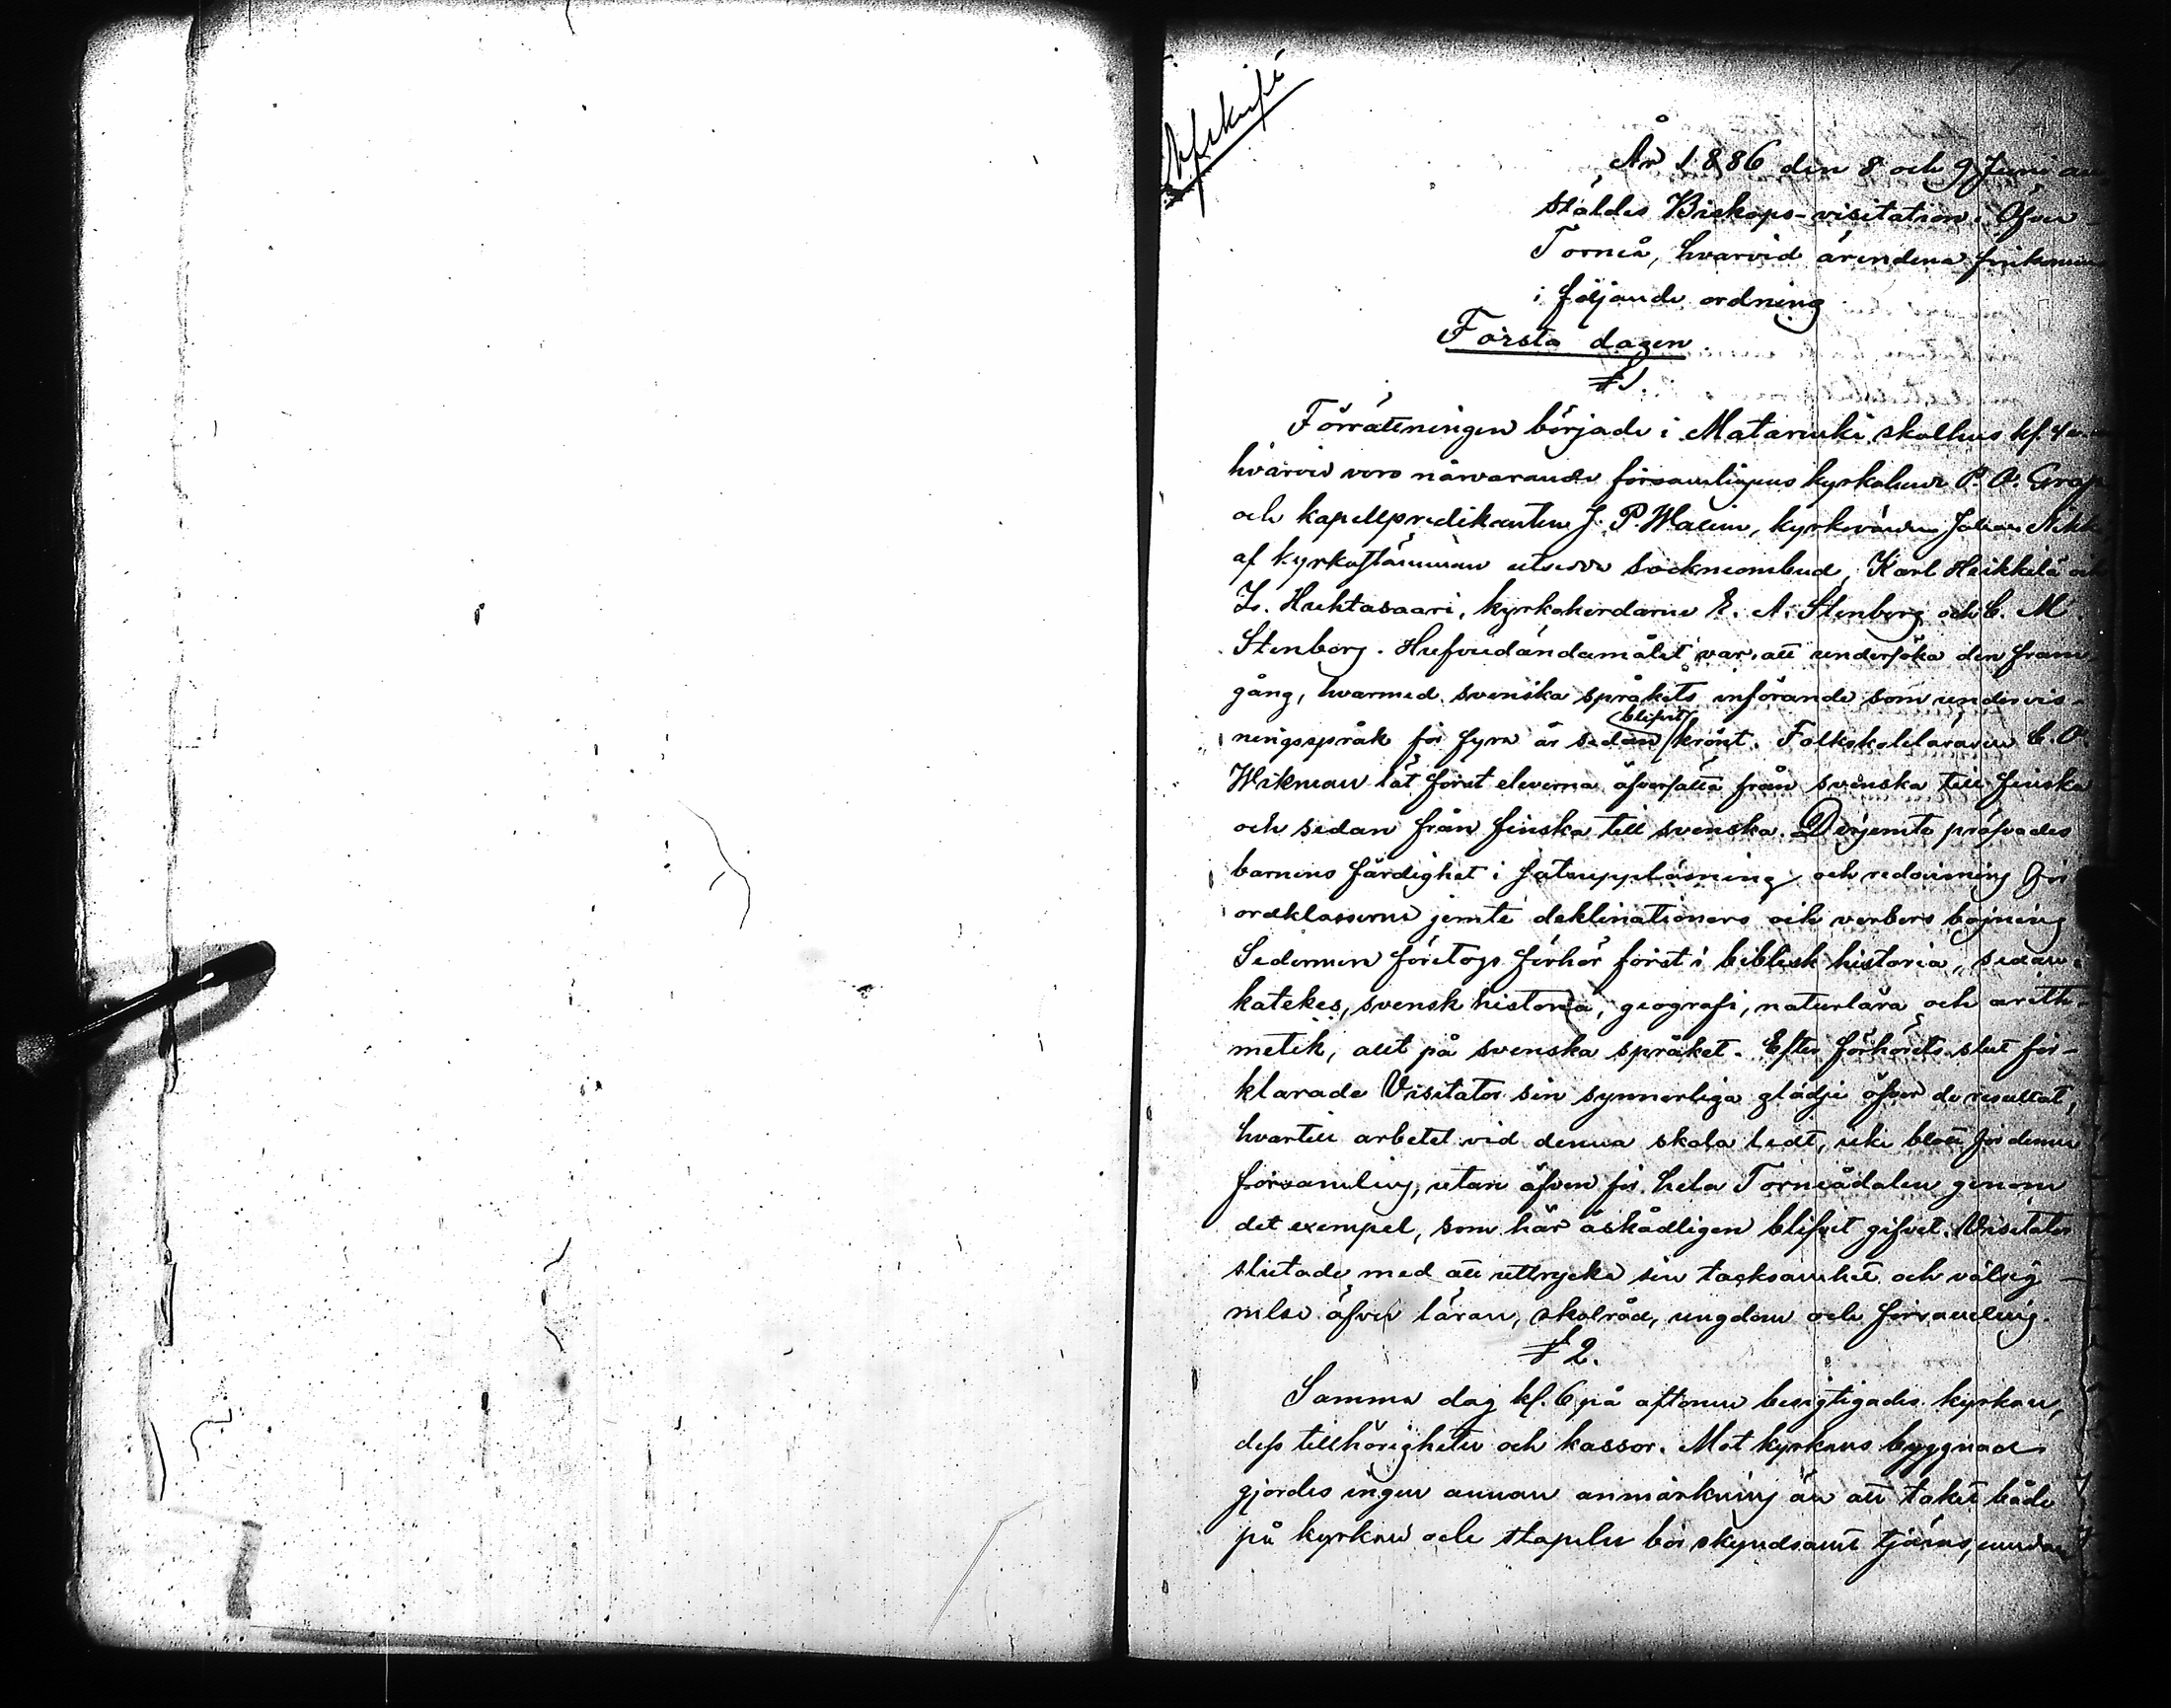 Afskrift
År 1886 den 8 och 9 Juni an-
stäldes Biskops-visitation i Öfver-
Torneå, hvarvid ärendena förekommo
i följande ordning
Första dagen.
§ 1.
Förrättningen började i Matarenki skolhus kl. 4
hvarvid voro närvarande församligens kyrkoherde P. O. Grape
och kapellpredikanten J. P. Wallin, kyrkvärden Johan
af kyrkostämman utsedda sockneombud, Karl Heikkilä och
Z. Huhtasaari, kyrkoherdarne E. A. Stenborg och C. M.
Stenborg. Hufvudändamålet var att undersöka den fram-
gång, hvarmed svenska språkets införande som undervis-
ningsspråk för fyra år sedan blifvit krönt. Folkskolelärareu C. O.
Wikman lät först eleverna öfversätta från svenska till finska
och sedan från finska till svenska. Derjemte pröfvades
barnens färdighet i satsupplösning och redovisning för
ordklasserne jemte deklinationers och verbers böjning
Sedermera företogs förhör först i biblisk historia, sedan i
katekes, svensk historia, geografi, naturlära och arith-
metik, allt på svenska språket. Efter förhörets slut för-
klarade Visitator sin synnerliga glädje öfver de resultat,
hvartill arbetet vid denna skola ledt, icke blott för denna
församling, utan äfven för hela Torneådalen genom
det exempel, som här åskådligen blifvit gifvet. Visitator
slutade med att uttrycka sin tacksamhet och välsig-
nelse öfver läraren, skolråd, ungdom och församling.
§ 2.
Samma dag kl. 6 på aftonen besigtigades kyrkan,
dess tillhörigheter och kassor. Mot kyrkans byggnad
gjordes ingen annan anmärkning än att taket både
på kyrkan och stapeln bör skyndsamt tjäras, medan